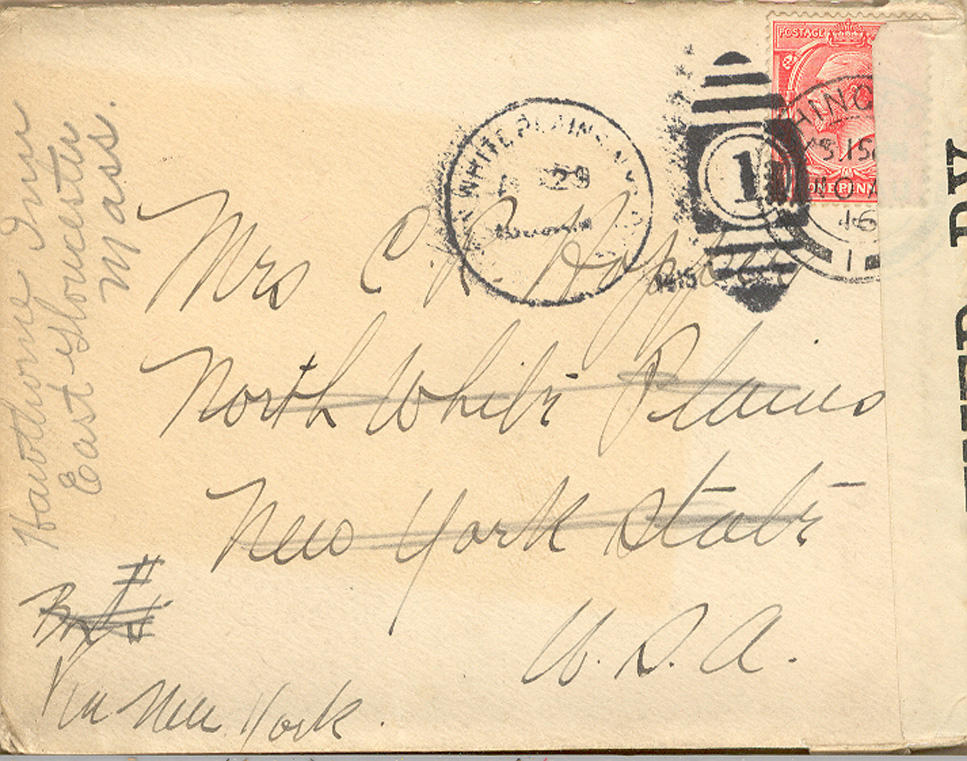 POSTAGE
ONE PENN
WHITE PLAINS N.Y.
29
1
1915
16
Mrs C. R.
North White Plains
New York State
U. S. A.
Via New York.
Hawthorne Inn
East Gloucester
Mass.